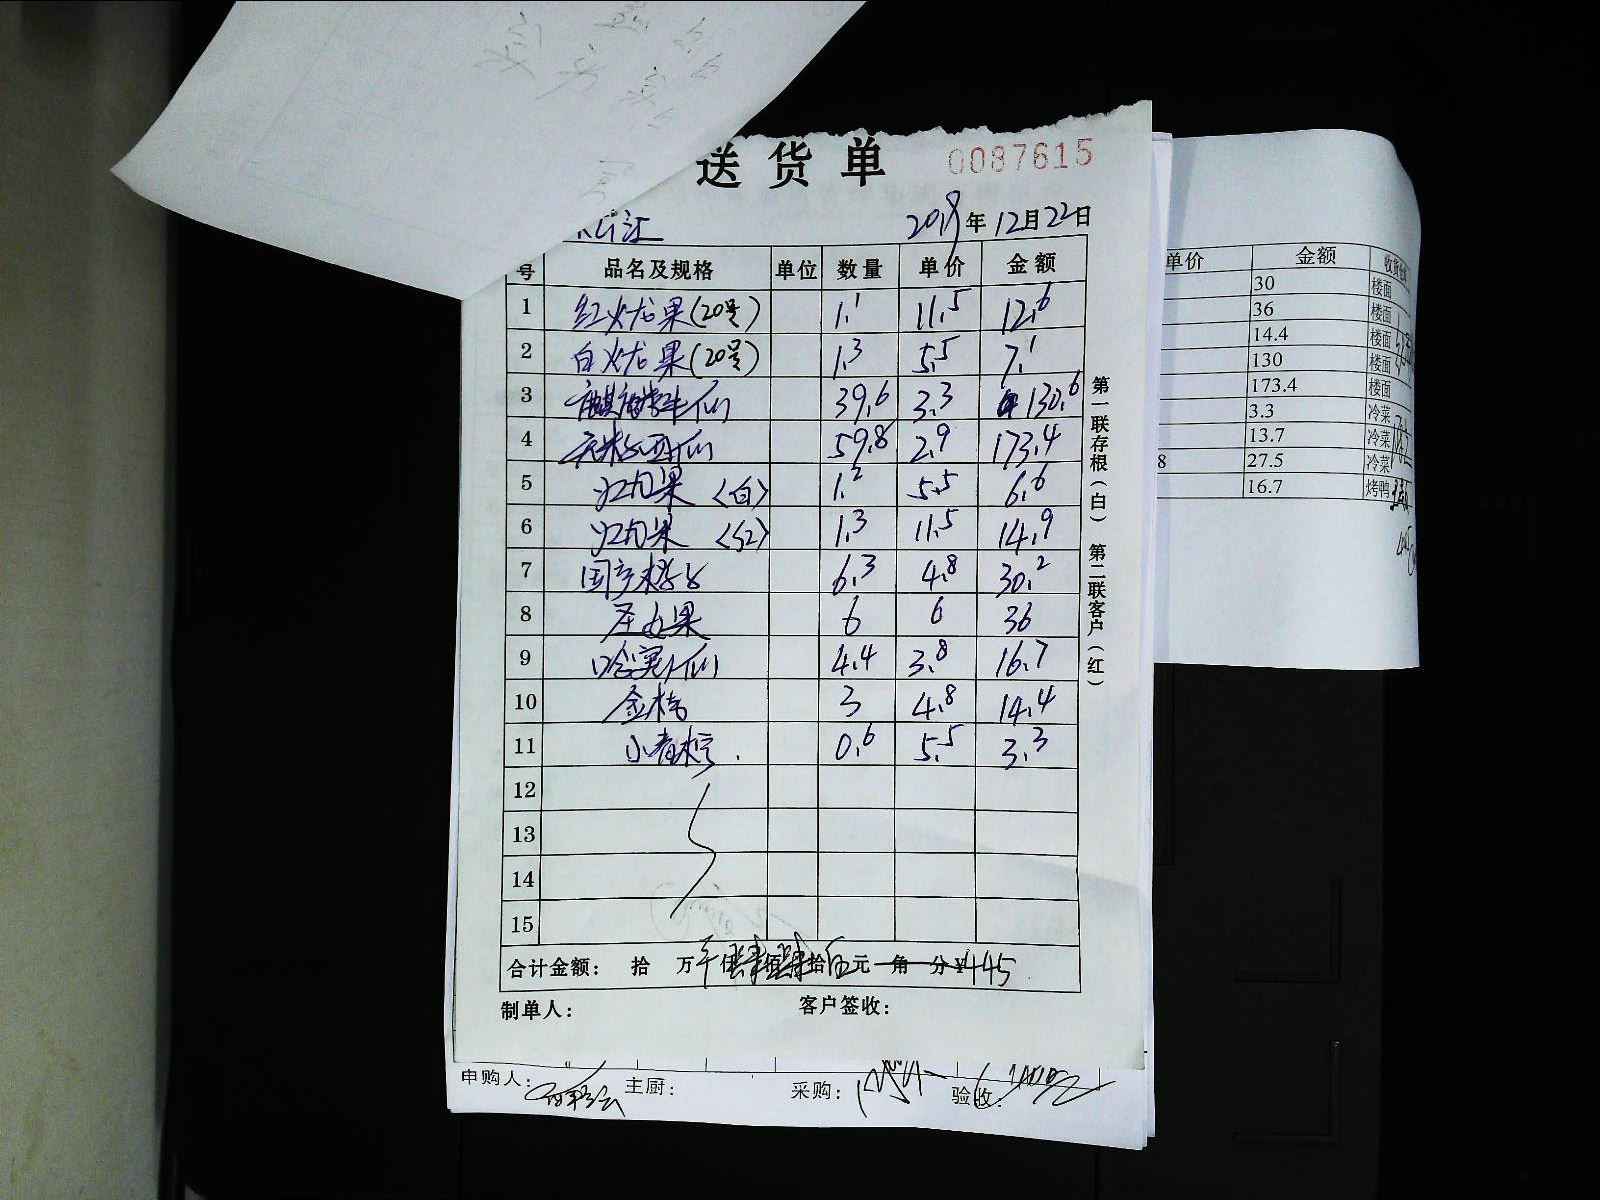 送货单 0087615
2019年12月22日
号 品名及规格 单位 数量 单价 金额
1 红火龙果(20号) 1.1 11.5 12.6
2 白火龙果(20号) 1.3 5.5 7.1
3 39.6 3.3 130.6
4 59.8 2.9 173.4
5 火龙果〈白〉 1.2 5.5 6.6
6 火龙果〈红〉 1.3 11.5 14.9
7 国产橙子 6.3 4.8 30.2
8 圣女果 6 6 36
9 哈密瓜 4.4 3.8 16.7
10 金桔 3 4.8 14.4
11 小青柠 0.6 5.5 3.3
12
13
14
15
合计金额: 拾 万 仟肆佰肆拾伍元 角 分¥445
制单人: 客户签收:
第一联存根(白) 第二联客户(红)
申购人: 主厨: 采购: 验收:
单价 金额
30 楼面
36 楼面
14.4 楼面
130 楼面
173.4 楼面
3.3 冷菜
13.7 冷菜
8 27.5 冷菜
16.7 烤鸭